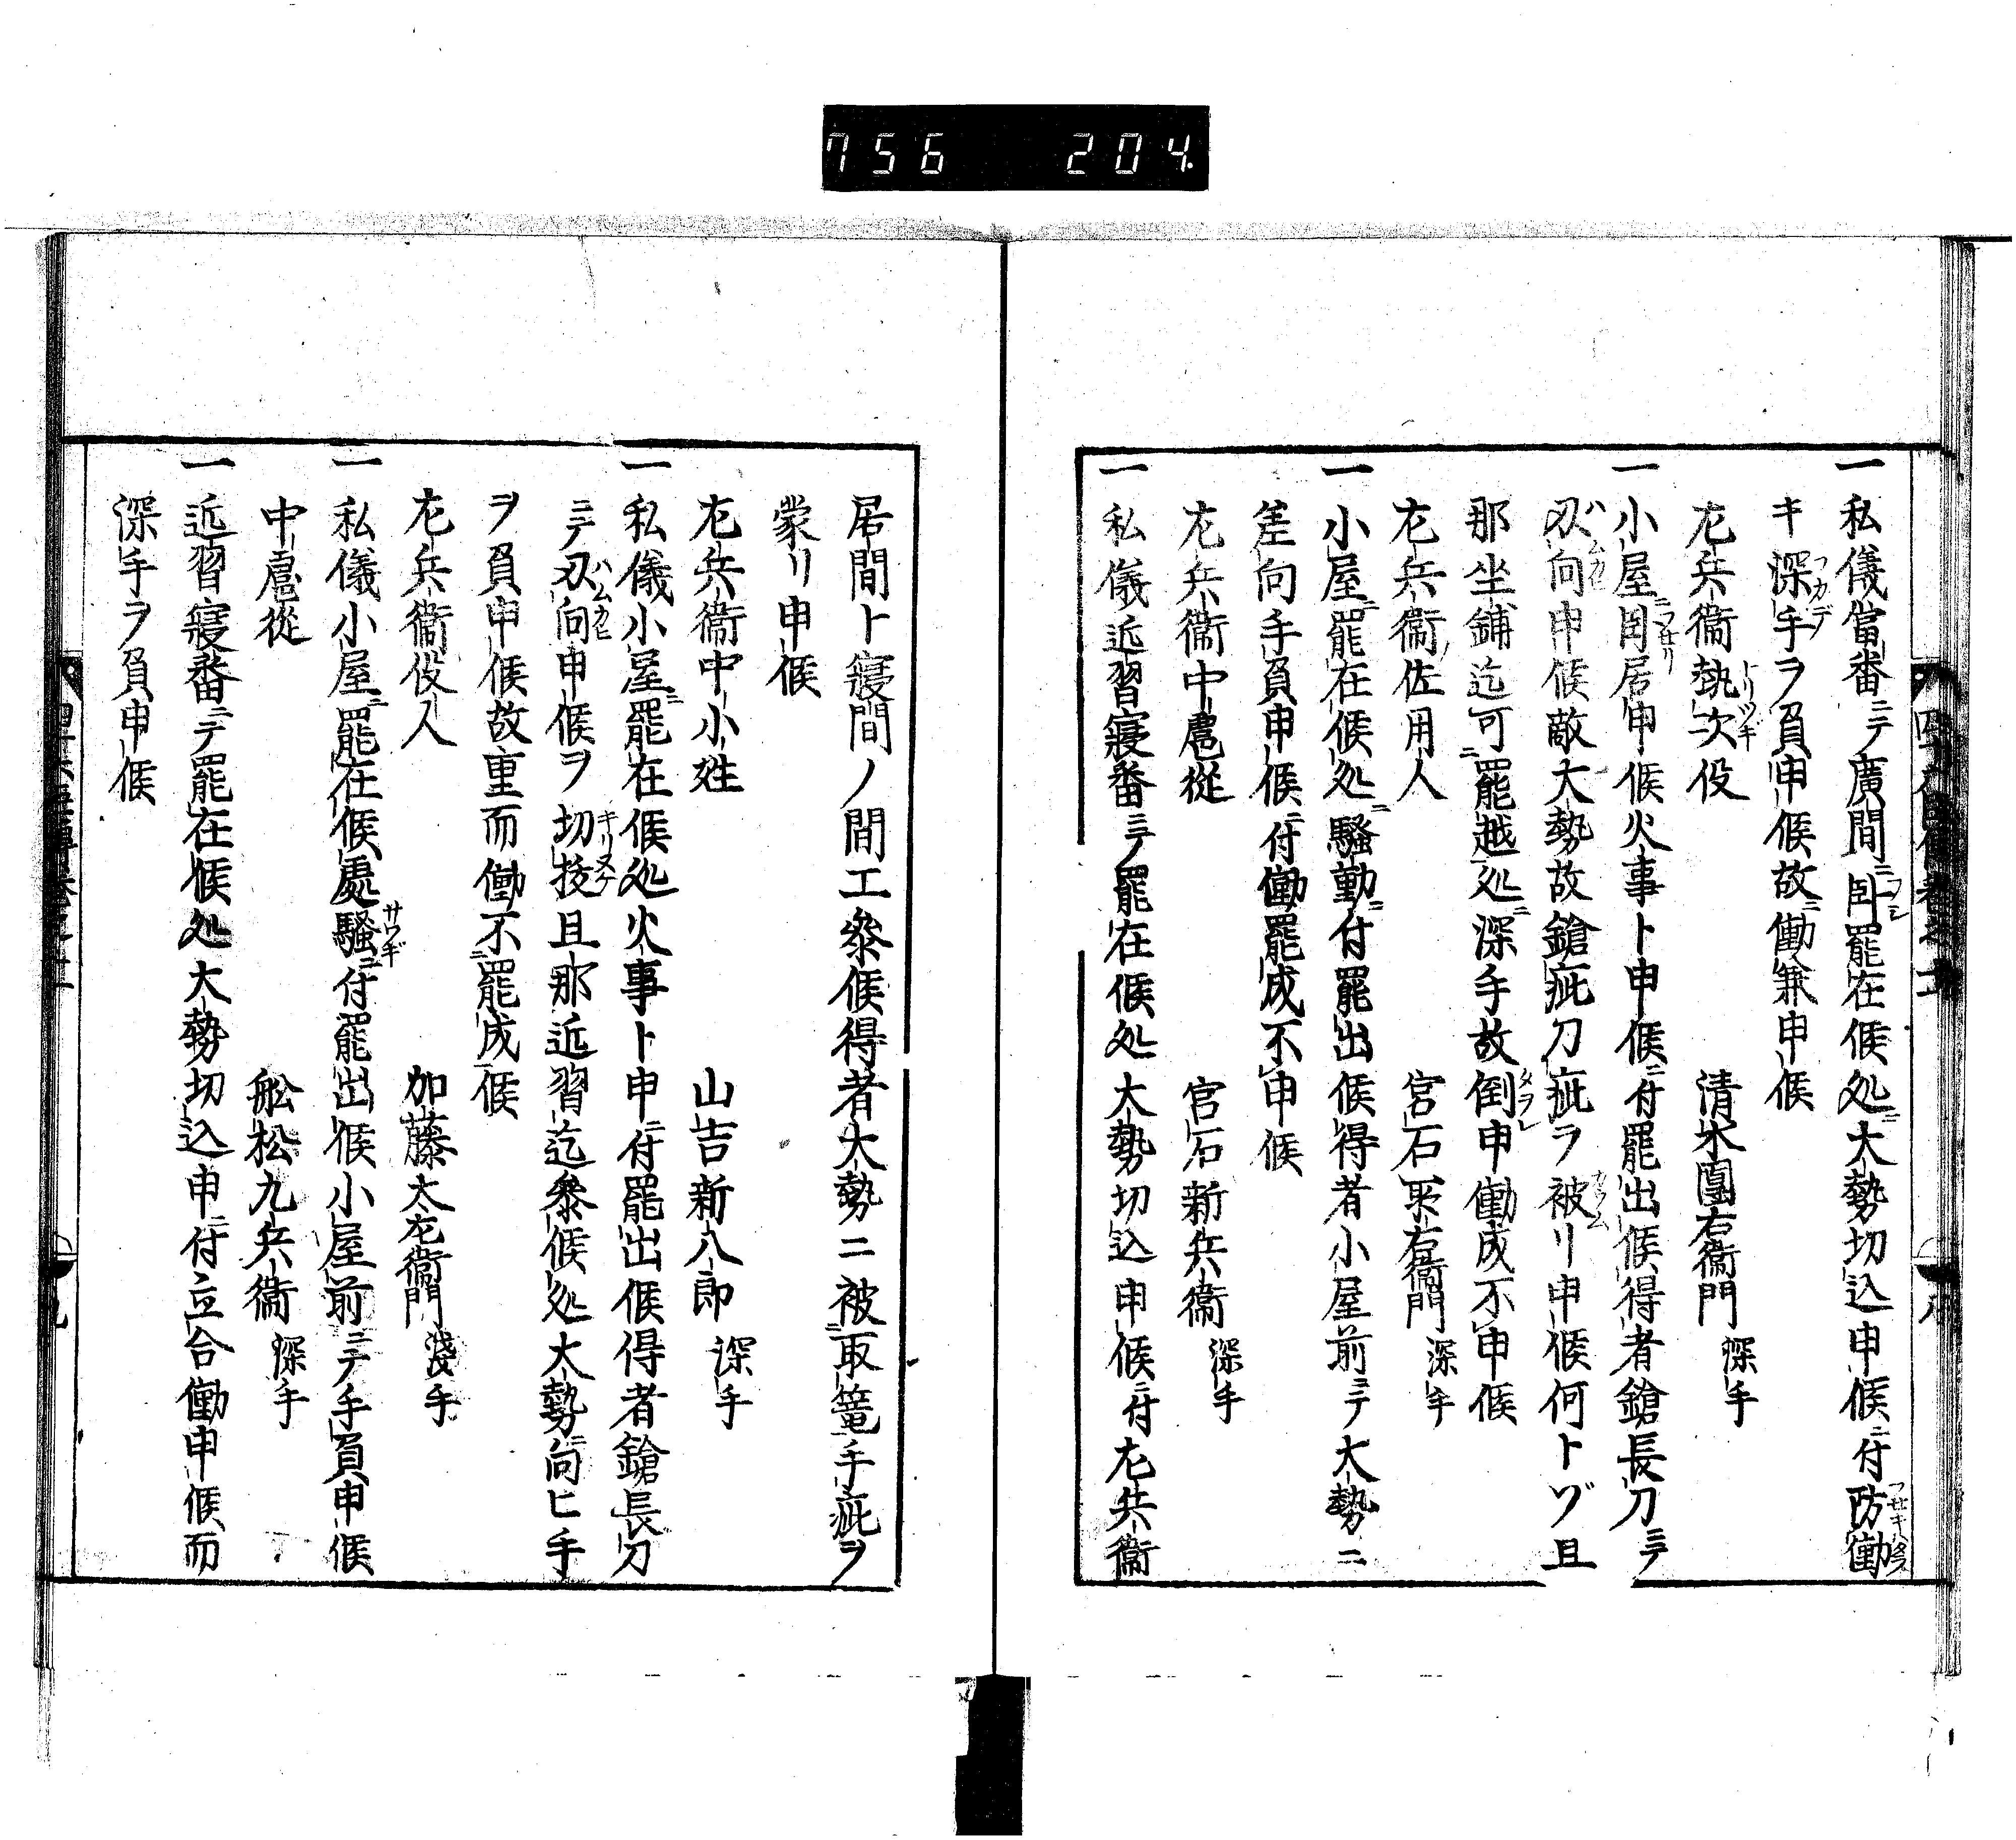 756 204
一私儀當番ニテ廣間ニ臥罷在候処ニ大勢切込申候ニ付防働
キ深手ヲ負申候故ニ働兼申候
左兵衞執次役 清水團右衞門 深手
一小屋ニ臥居申候火事ト申候ニ付罷出候得者鎗長刀ニテ
刄向申候敵大勢故鎗疵刀疵ヲ被リ申候何トゾ且
那坐鋪迄可ニ罷越処ニ深手故倒申働成不申候
左兵衞佐用人 宮石所右衞門 深手
一小屋ニ罷在候処ニ騒動ニ付罷出候得者小屋前ニテ大勢ニ
差向手負申候ニ付働罷成不申候
左兵衞中扈從 宮石新兵衞 深手
一私儀近習寢番ニテ罷在候処大勢切込申候ニ付左兵衞
居間ト寢間ノ間エ參候得者大勢ニ被ニ取篭手疵ヲ
蒙リ申候
左兵衞中小姓 山吉新八郎 深手
一私儀小屋ニ罷在候処火事ト申ニ付罷出候得者鎗長刀
ニテ刄向申候ヲ切拔且那近習迄參候処大勢ニ向ヒ手
ヲ負申候故重而働不ニ罷成候
左兵衞役人 加藤太左衞門 淺手
一私儀小屋ニ罷在候處騒ニ付罷出候小屋前ニテ手負申候
中扈從 舩松九兵衞 深手
一近習寢番ニテ罷在候処大勢切込申ニ付立合働申候而
深手ヲ負申候